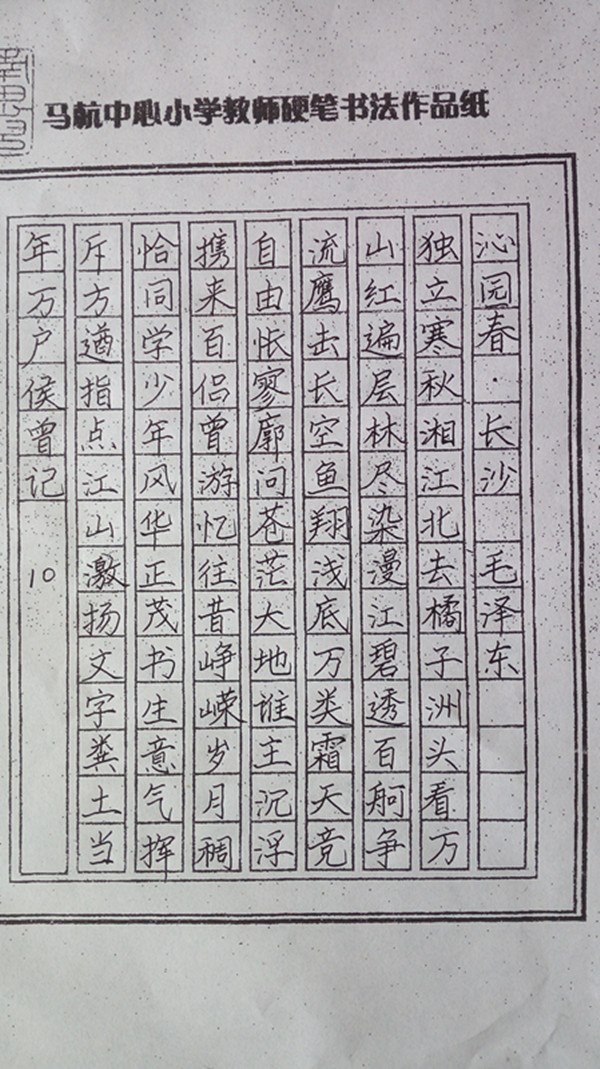 马杭中心小学教师硬笔书法作品纸
沁园春·长沙 毛泽东
独立寒秋湘江北去橘子洲头看万
山红遍层林尽染漫江碧透百舸争
流鹰击长空鱼翔浅底万类霜天竞
自由怅寥廓问苍茫大地谁主沉浮
携来百侣曾游忆往昔峥嵘岁月稠
恰同学少年风华正茂书生意气挥
斥方遒指点江山激扬文字粪土当
年万户侯曾记 10